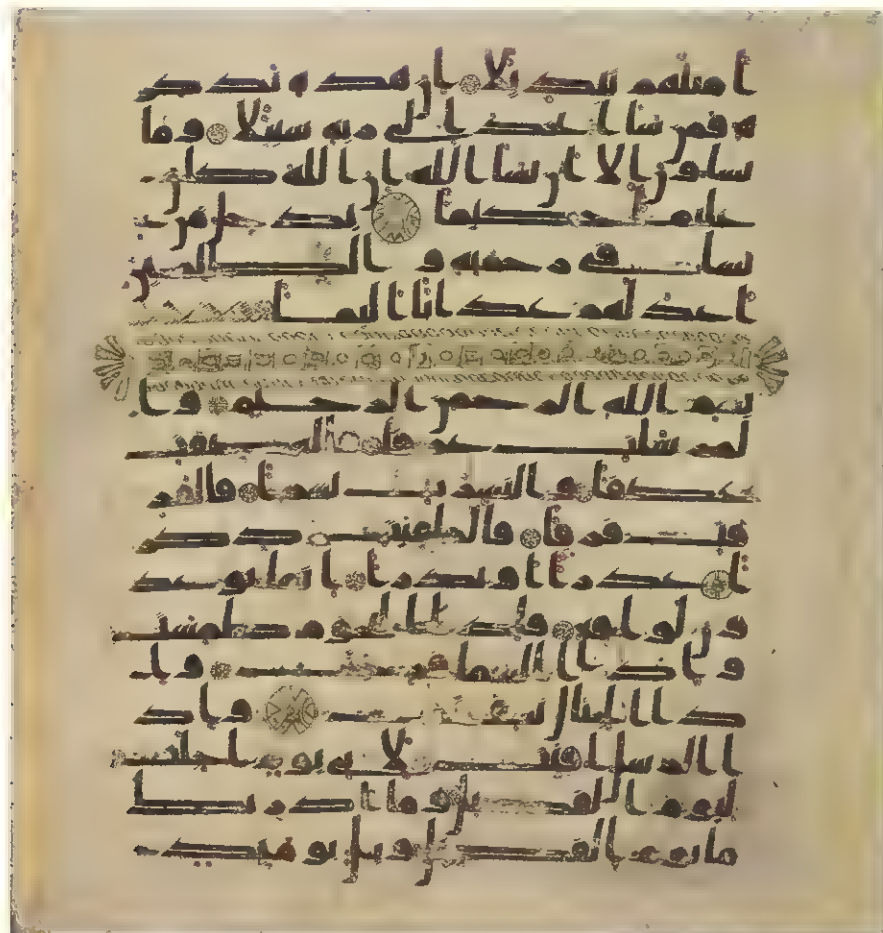 ا مثلهم تبديلا ان هذه تذكر
ة فمن شا اتخذ الى ربه سبيلا وما
تشاون الا ان يشا الله ان الله كان
عليما حكيما يدخل من
يشا فى رحمته و الظلمين
اعد لهم عذابا اليما
بسم الله الرحمن الرحيم وا
لمرسلت عرفا فالعصفت
عصفا والنشرت نشرا فالفر
قت فرقا فالملقيت ذكر
ا عذرا او نذرا انما توعد
ون لواقع فاذا النجوم طمست
واذا السما فرجت واذ
ا الجبال نسفت واذ
ا الرسل اقتت لاى يوم اجلت
ليوم الفصل وما ادريك
ما يوم الفصل ويل يومئذ